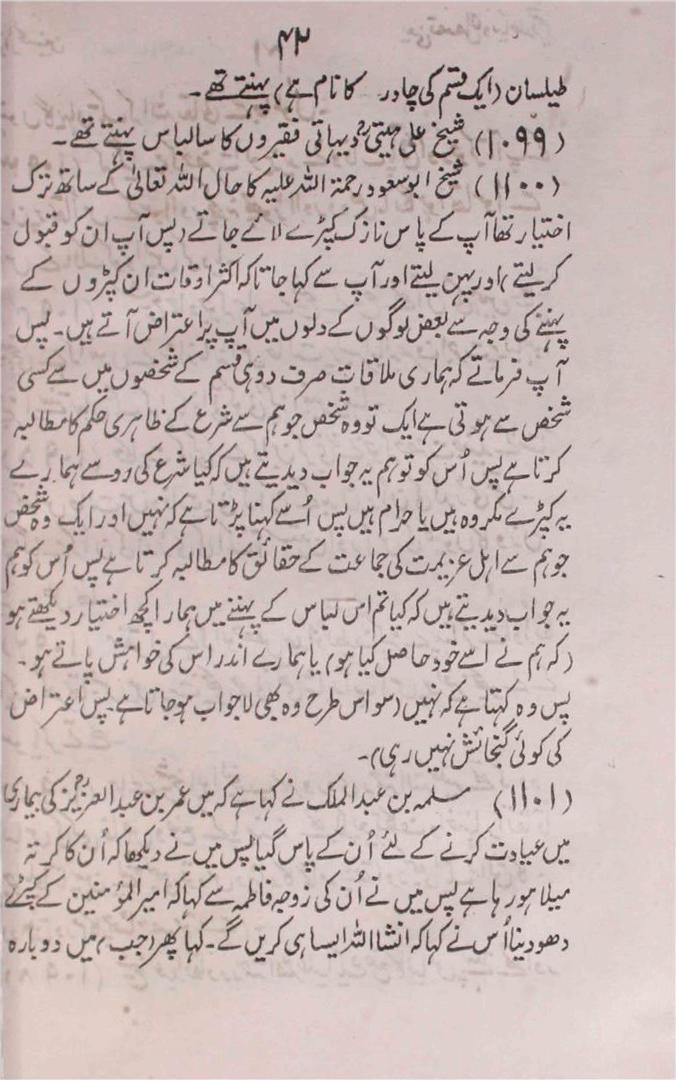 ۴۲
طیلسان (ایک قسم کی چادر کا نام ہے) پہنتے تھے۔
(۱۰۹۹) شیخ علی ہیتیؒ دیہاتی فقیروں کا سا لباس پہنتے تھے۔
(۱۱۰۰) شیخ ابوسعود رحمۃ اللہ علیہ کا حال اللہ تعالیٰ کے ساتھ ترک
اختیار تھا آپ کے پاس نازک کپڑے لائے جاتے (پس آپ ان کو قبول
کر لیتے) اور پہن لیتے اور آپ سے کہا جاتا کہ اکثر اوقات ان کپڑوں کے
پہننے کی وجہ سے بعض لوگوں کے دلوں میں آپ پر اعتراض آتے ہیں۔ پس
آپ فرماتے کہ ہماری ملاقات صرف دو ہی قسم کے شخصوں میں سے کسی
شخص سے ہوتی ہے ایک تو وہ شخص جو ہم سے شرع کے ظاہری حکم کا مطالبہ
کرتا ہے پس اُس کو تو ہم یہ جواب دیدیتے ہیں کہ کیا شرع کی رو سے ہمارے
یہ کپڑے مکروہ ہیں یا حرام ہیں پس اُسے کہنا پڑتا ہے کہ نہیں اور ایک وہ شخص
جو ہم سے اہل عزیمت کی جماعت کے حقائق کا مطالبہ کرتا ہے پس اُس کو ہم
یہ جواب دیدیتے ہیں کہ کیا تم اس لباس کے پہننے میں ہمارا کچھ اختیار دیکھتے ہو
(کہ ہم نے اسے خود حاصل کیا ہو) یا ہمارے اندر اس کی خواہش پاتے ہو۔
پس وہ کہتا ہے کہ نہیں (سو اس طرح وہ بھی لاجواب ہو جاتا ہے۔ پس اعتراض
کی کوئی گنجائش نہیں رہی)۔
(۱۱۰۱) مسلمہ بن عبدالملک نے کہا ہے کہ میں عمر بن عبدالعزیزؒ کی بیماری
میں عیادت کرنے کے لئے اُن کے پاس گیا پس میں نے دیکھا کہ اُن کا کرتہ
میلا ہو رہا ہے پس میں نے اُن کی زوجہ فاطمہ سے کہا کہ امیر المؤمنین کے کپڑے
دھو دینا اُس نے کہا کہ انشا اللہ ایسا ہی کریں گے۔ کہا پھر (جب) میں دوبارہ